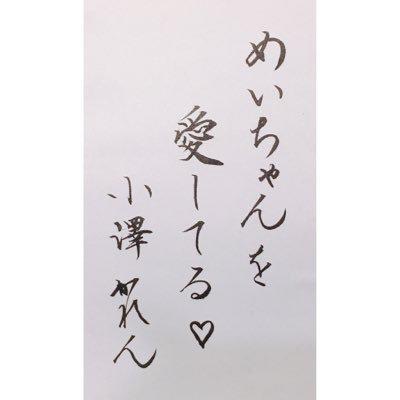 めいちゃんを
愛してる♡
小澤かれん